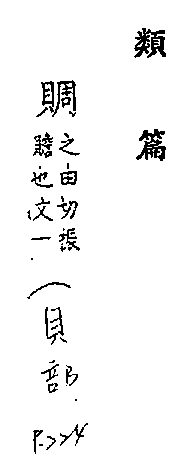 類篇
賙 之由切張
贍也文一
(貝部.
P.224